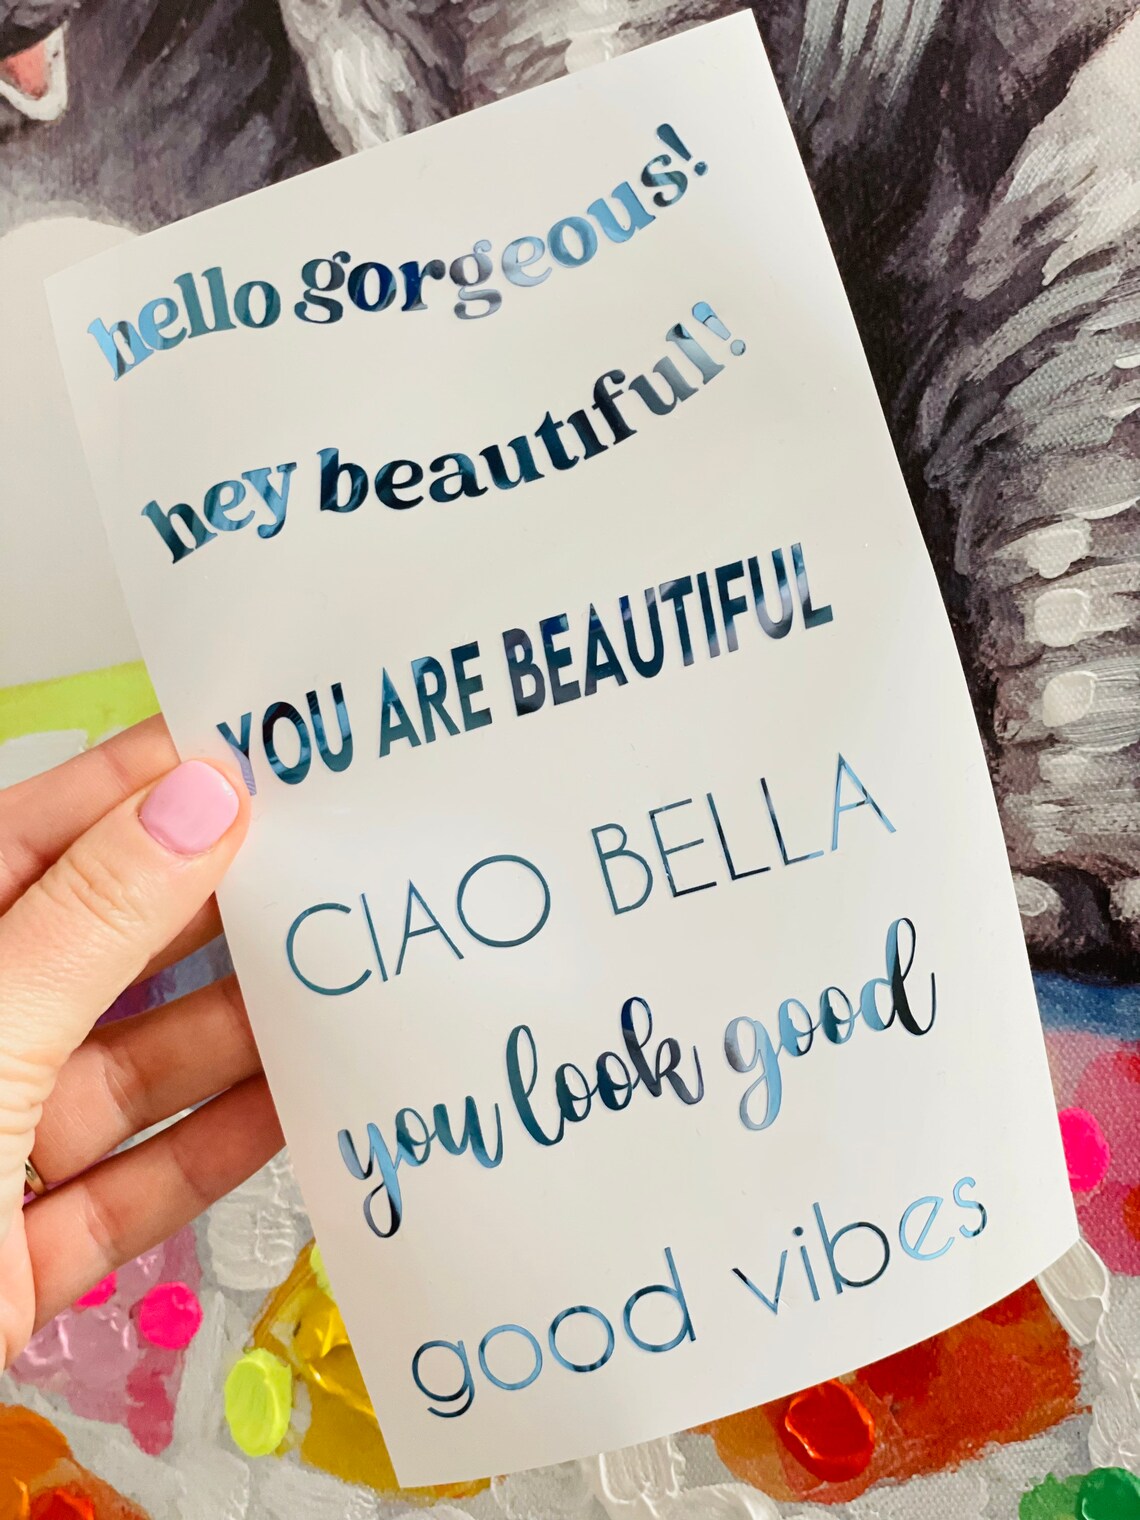 hello gorgeous!
hey beautiful!
YOU ARE BEAUTIFUL
CIAO BELLA
you look good
good vibes